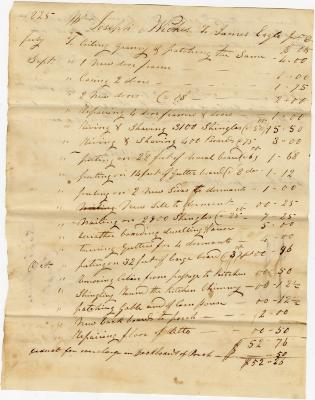 1825 Mr Joseph Wickes To James Cagle Jr Dr
July To Ceiling granery & patching the Same — 5-75
Sept " 1 New door frame — 4-00
" Casing 2 doors — 1-00
" 2 New doors @ 1 $ — 2-00
" Repairing 4 door frames & doors — 1-00
" Riving & Shaving 3100 Shingles @ 5$ 15-50
" Riving & Shaving 400 Boards 3-00
" putting on 28 feet of barge board 6 cts 1-68
" putting on 14 feet of Gutter board @ 8 cts 1-12
" putting on 2 New Sides to dormants — 1-00
" New Sill to dormant — 00-25
" Nailing on 2900 Shingles 7-25
" weather boarding dwelling House 5-00
" turning Gutters for 4 dormants — 4-00
Oct " putting on 32 feet of barge board @ 3 cts 00-96
" Removing from passage to Kitchen 00-50
" Shingling Round the Kitchen Chimney — 00-12½
" patching Gable end of Corn House — 00-12½
" New back boards to porch — 2-00
" Repairing floor of Ditto — 00-50
$ 52-76
deduct for overcharge on — $ -50
$ 52-26